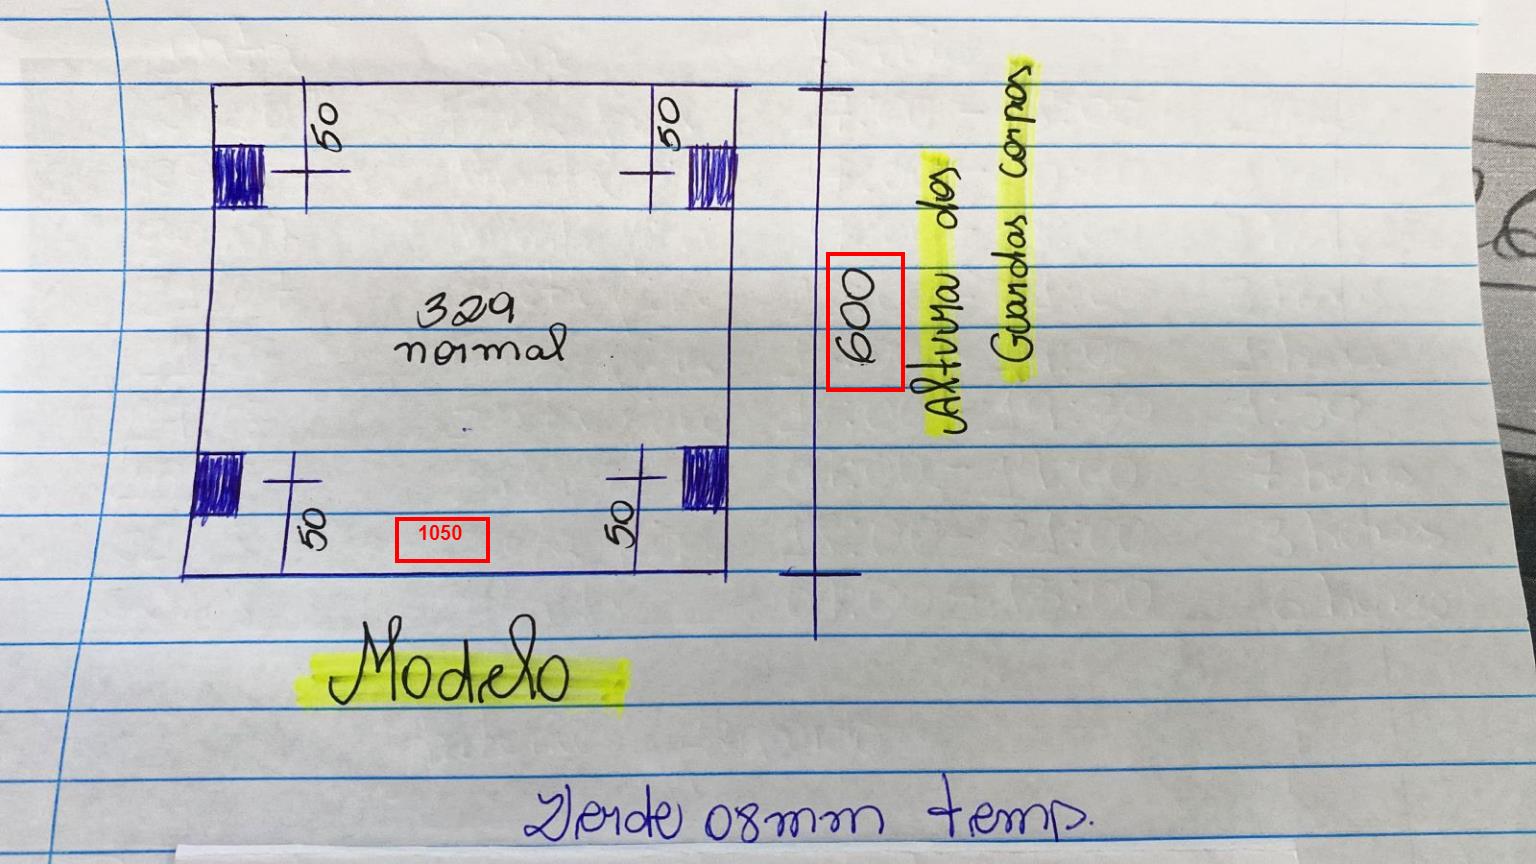 50
50
329
normal
600
Altura dos
Guardas corpos
50
1050
50
Modelo
Verde 08mm temp.